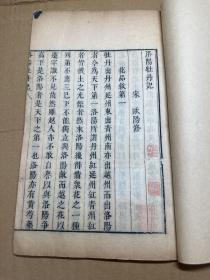 洛陽牡丹記
宋 歐陽修
花品敘第一
牡丹出丹州延州東出青州南亦出越州而出洛陽
者今為天下第一洛陽所謂丹州紅延州紅青州紅
者皆彼土之尤傑者然來洛陽纔得備衆花之一種
列第不出三已下不能獨立與洛陽敵而越之花以
遠罕識不見齒然雖越人亦不敢自譽以與洛陽爭
高下是洛陽者是天下之第一也洛陽亦有黄芍藥